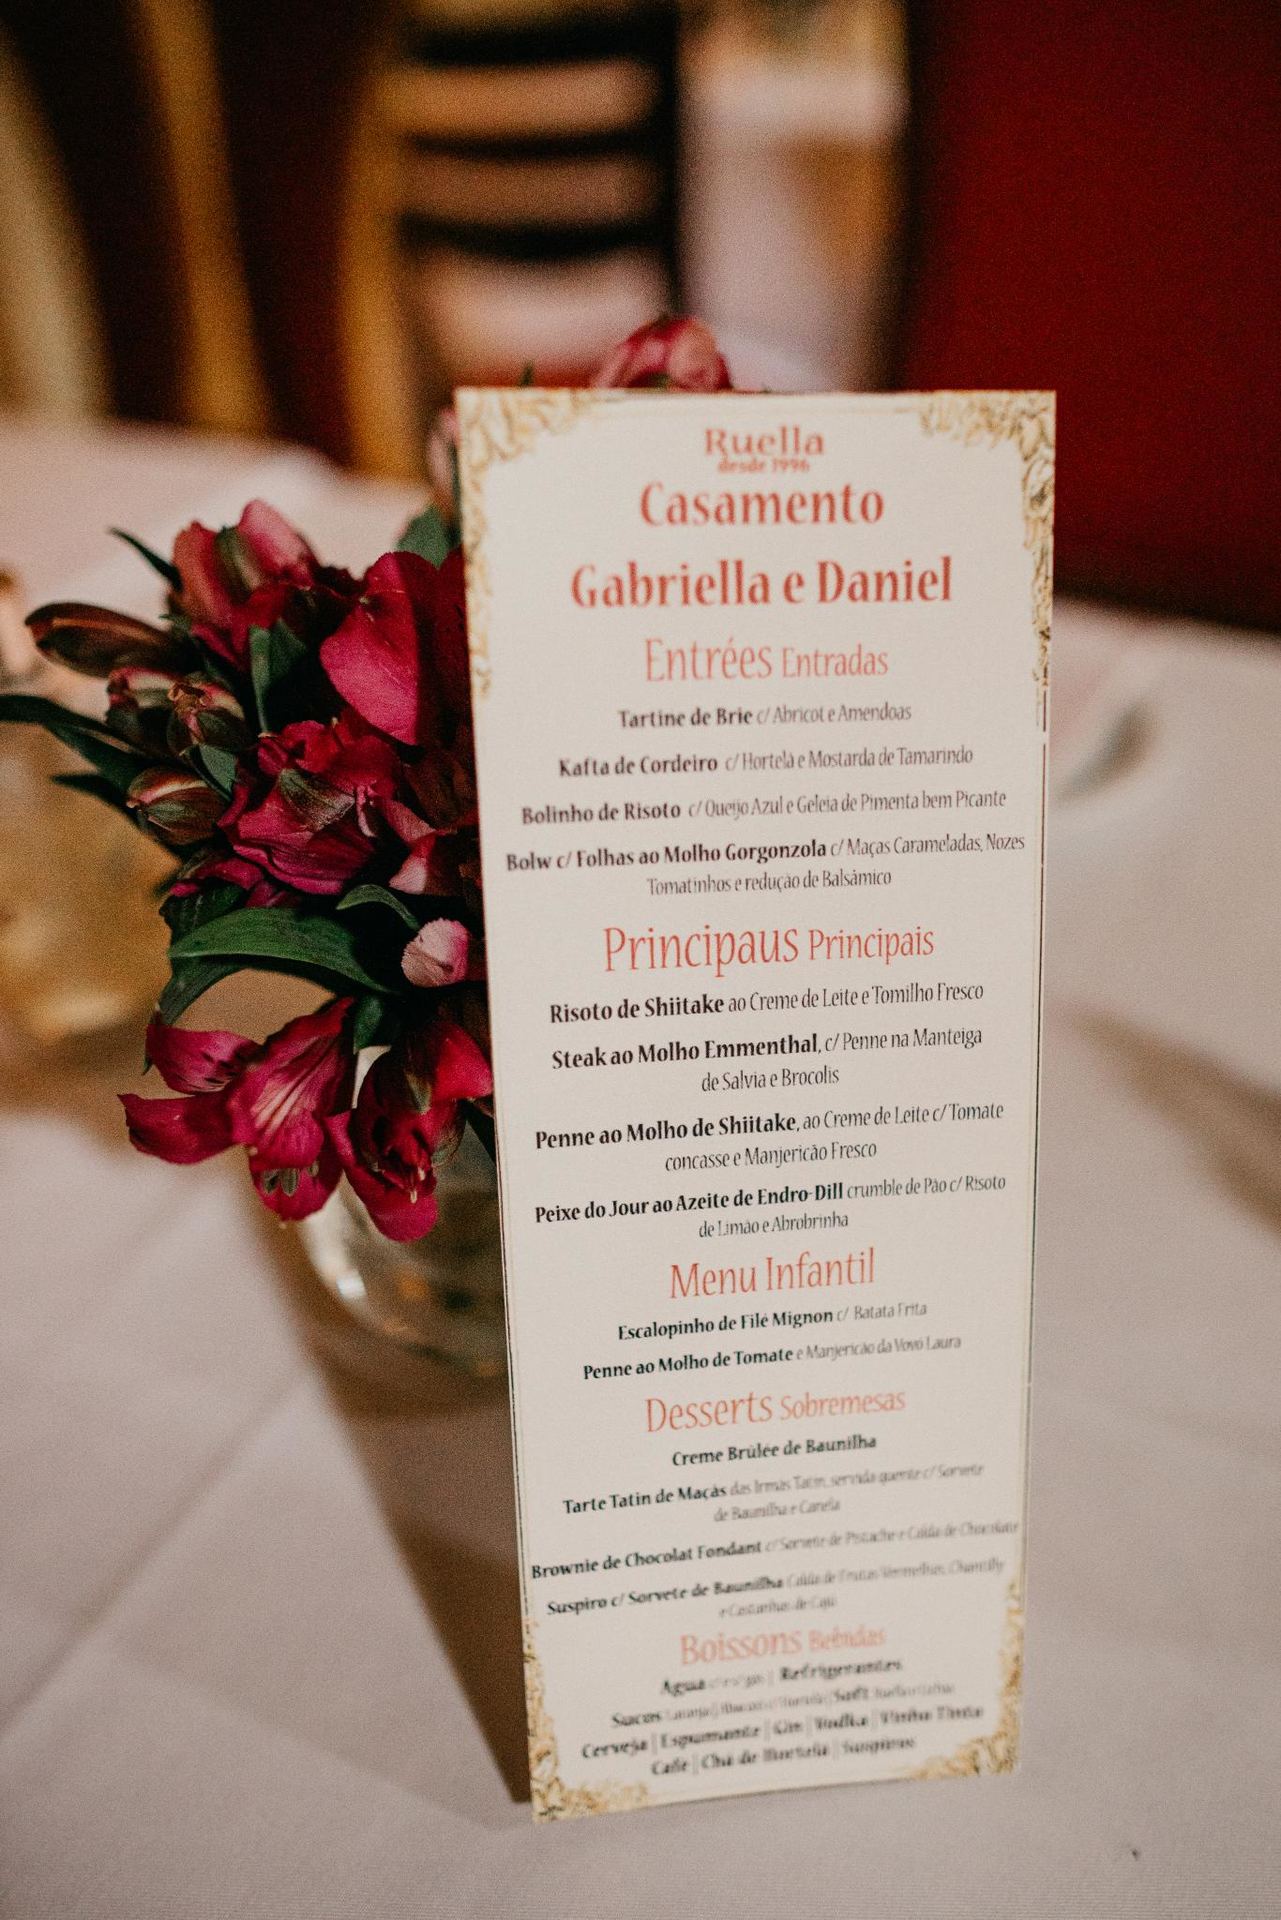 Ruella
desde 1996
Casamento
Gabriella e Daniel
Entrées Entradas
Tartine de Brie c/ Abricot e Amendoas
Kafta de Cordeiro c/ Hortelã e Mostarda de Tamarindo
Bolinho de Risoto c/ Queijo Azul e Geleia de Pimenta bem Picante
Bolw c/ Folhas ao Molho Gorgonzola c/ Maças Carameladas, Nozes
Tomatinhos e redução de Balsâmico
Principaus Principais
Risoto de Shiitake ao Creme de Leite e Tomilho Fresco
Steak ao Molho Emmenthal, c/ Penne na Manteiga
de Salvia e Brocolis
Penne ao Molho de Shiitake, ao Creme de Leite c/ Tomate
concasse e Manjericão Fresco
Peixe do Jour ao Azeite de Endro-Dill crumble de Pão c/ Risoto
de Limão e Abrobrinha
Menu Infantil
Escalopinho de Filé Mignon c/ Batata Frita
Penne ao Molho de Tomate e Manjericão da Vovó Laura
Desserts Sobremesas
Creme Brûlée de Baunilha
Tarte Tatin de Maçãs das Irmãs Tatin, servida quente c/ Sorvete
de Baunilha e Canela
Brownie de Chocolat Fondant c/ Sorvete de Pistache e Calda de Chocolate
Suspiro c/ Sorvete de Baunilha Calda de Frutas Vermelhas, Chantilly
e Castanhas de Caju
Boissons Bebidas
Água | Refrigerantes
Sucos Laranja | Soft
Cerveja | Espumante | Gin | Vodka | Vinho Tinto
Café | Chá de Hortelã |